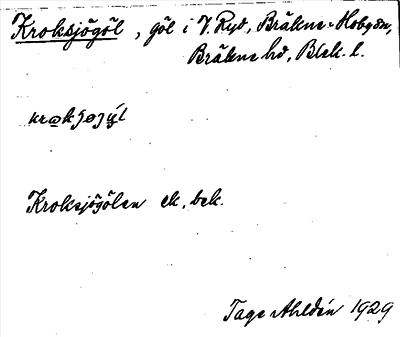 Kroksjögöl, göl i V. Ryd, Bräkne-Hobydn,
Bräkne hd, Blek. l.
Kroksjögölen ek. bek.
Tage Ahldén 1929